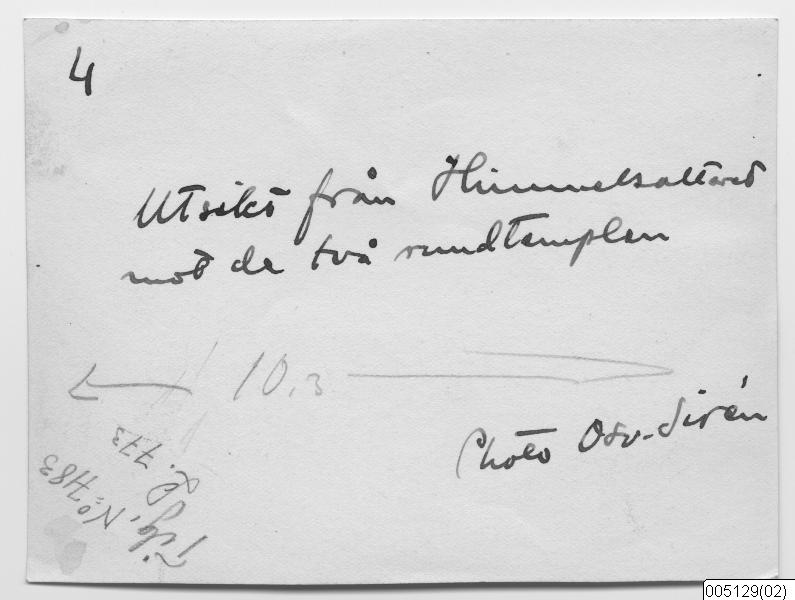 4
Utsikt från Himmelsaltaret
mot de två rundtemplen
10,3
Photo Osv. Sirén
Tilg. No: 7183
L. 773
005129(02)